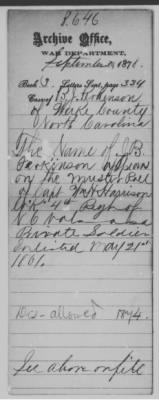 8.646
Archive Office,
WAR DEPARTMENT,
September 1871.
Book 3. Letters Sent, page 334
Case of B. J. Parkinson
of Wake County
North Carolina
The Name of J. B.
Parkinson appears
on the Muster Roll
of Capt Wm H. Harrison
4th Regt of
N C Vols as a
Private Soldier
enlisted May 21st
1861.
Dis-allowed 1874.
See above on file